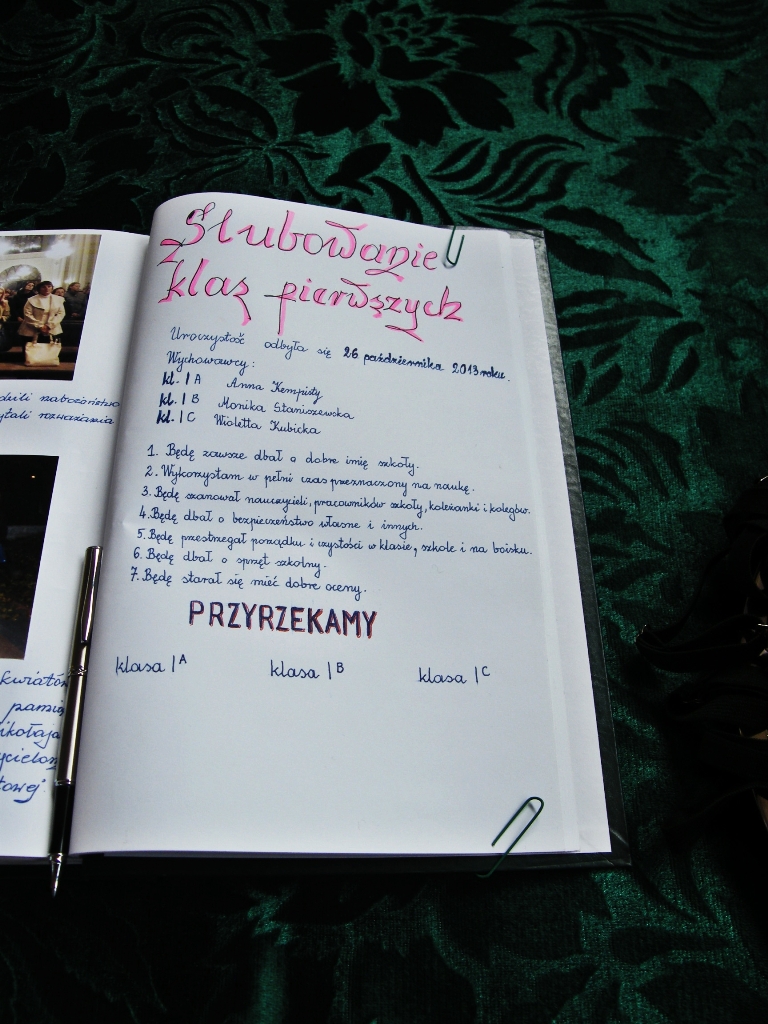 Ślubowanie
klas pierwszych
Uroczystość odbyła się 26 października 2013 roku.
Wychowawcy:
kl. I A Anna Kempisty
kl. I B Monika Staniszewska
kl. I C Wioletta Kubicka
1. Będę zawsze dbał o dobre imię szkoły.
2. Wykorzystam w pełni czas przeznaczony na naukę.
3. Będę szanował nauczycieli, pracowników szkoły, koleżanki i kolegów.
4. Będę dbał o bezpieczeństwo własne i innych.
5. Będę przestrzegał porządku i czystości w klasie, szkole i na boisku.
6. Będę dbał o sprzęt szkolny.
7. Będę starał się mieć dobre oceny.
PRZYRZEKAMY
klasa I A klasa I B klasa I C
nabożeństwo
rozważania